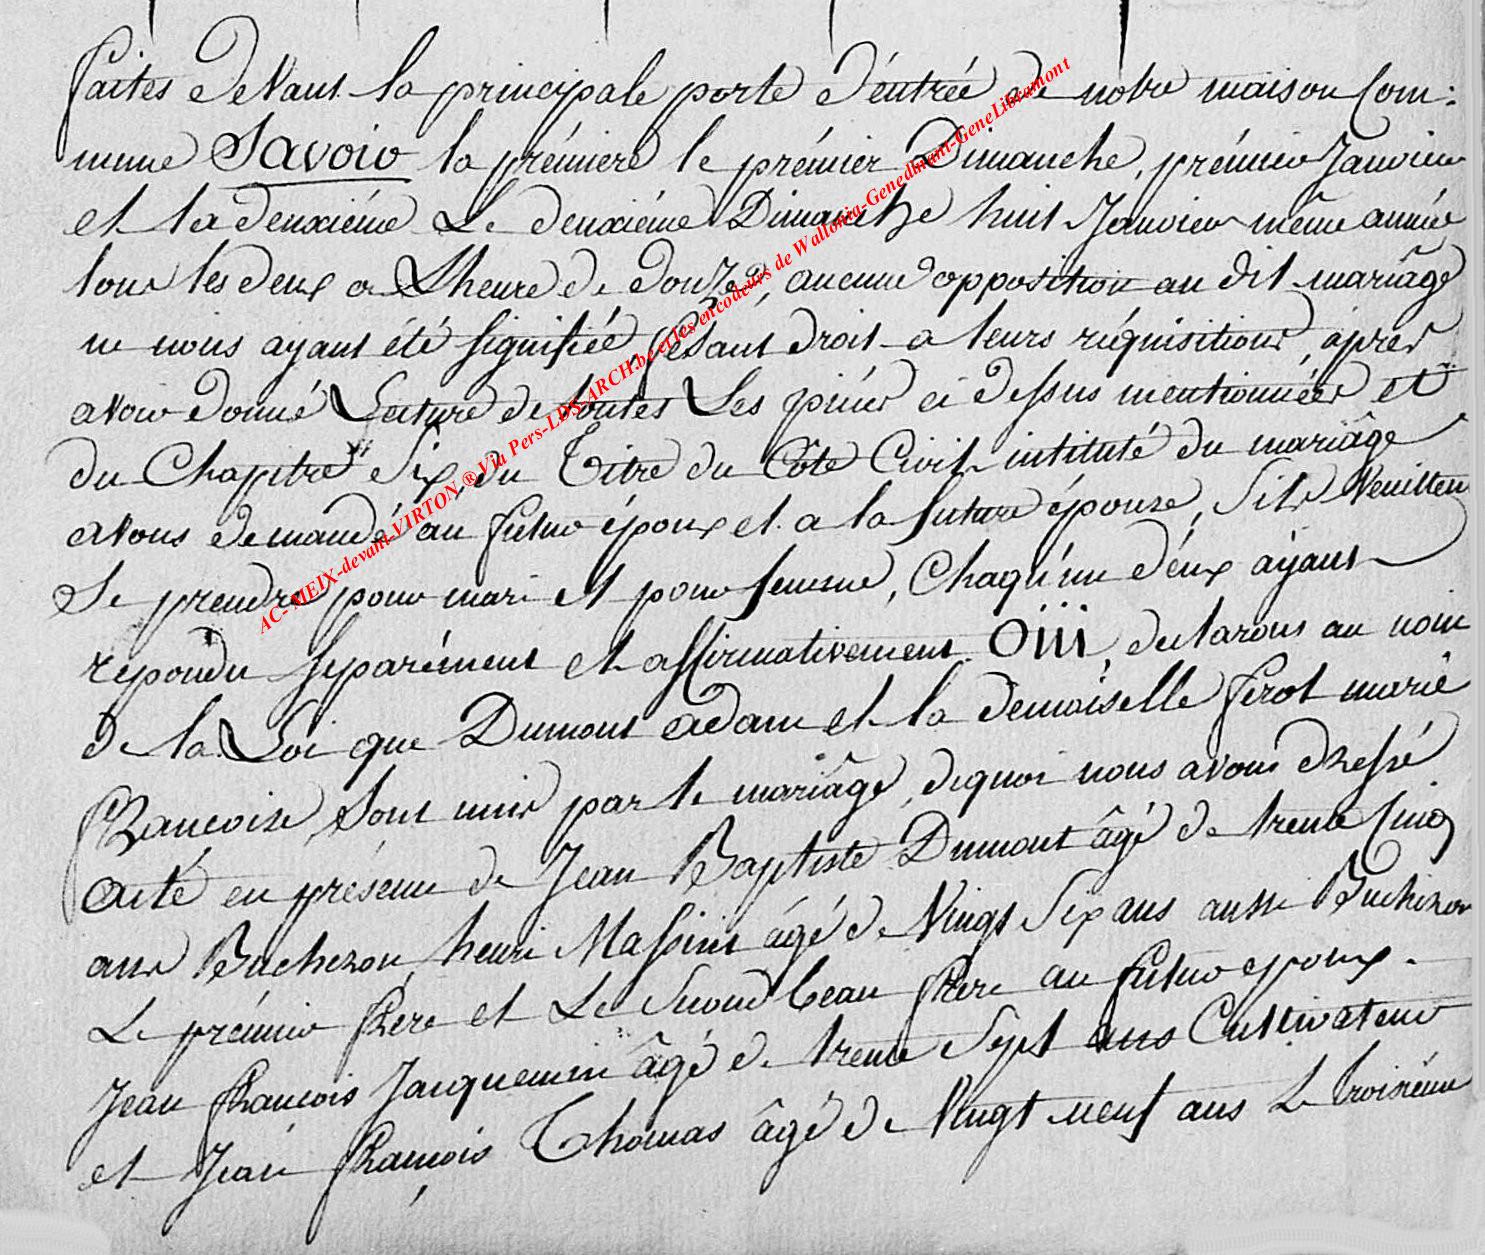 faites devant la principale porte d'éntrée de notre maison Com:
mune Savoir la prémiere le prémier Dimanche, prémier Janvier
et la deuxiéme Le deuxiéme Dimanche huit Janvier même année
tous les deux a L'heure de douze, aucune opposition au dit mariâge
ne nous ayant été signifiée, fesant droit a leurs réquisitions, áprés
avoir donné Lecture de toutes Les piéces ci dessus mentionnées et
du Chapitre Six, du Titre du Côte Civil intitulé du mariâge
avons demandé au futur époux et a la future épouse, Sils Veuillent
Se prendre pour mari et pour femme, Chaqu'un d'éux ayant
repondu séparément et affirmativement Oiii, declarons au nom
de la Loi que Dumont adam et la demoiselle ferot marie
francoise, sont unis par le mariâge, dequoi nous avons dressé
acte en présence de Jean Baptiste Dumont âgé de trente Cinq
ans Bucheron, henri Massint âgé de Vingt Six ans aussi Bucheron
Le prémier frere et Le Second beau frere au futur epoux.
Jean francois Jacquemin âgé de trente Sept ans Cultivateur
et Jean francois Thomas âgé de Vingt neuf ans Le troisiéme
AC-MEIX-devant-VIRTON ® Via Pers-LDS-ARCH.be et les encodeurs de Wallonia-Genedinant-GeneLibramont